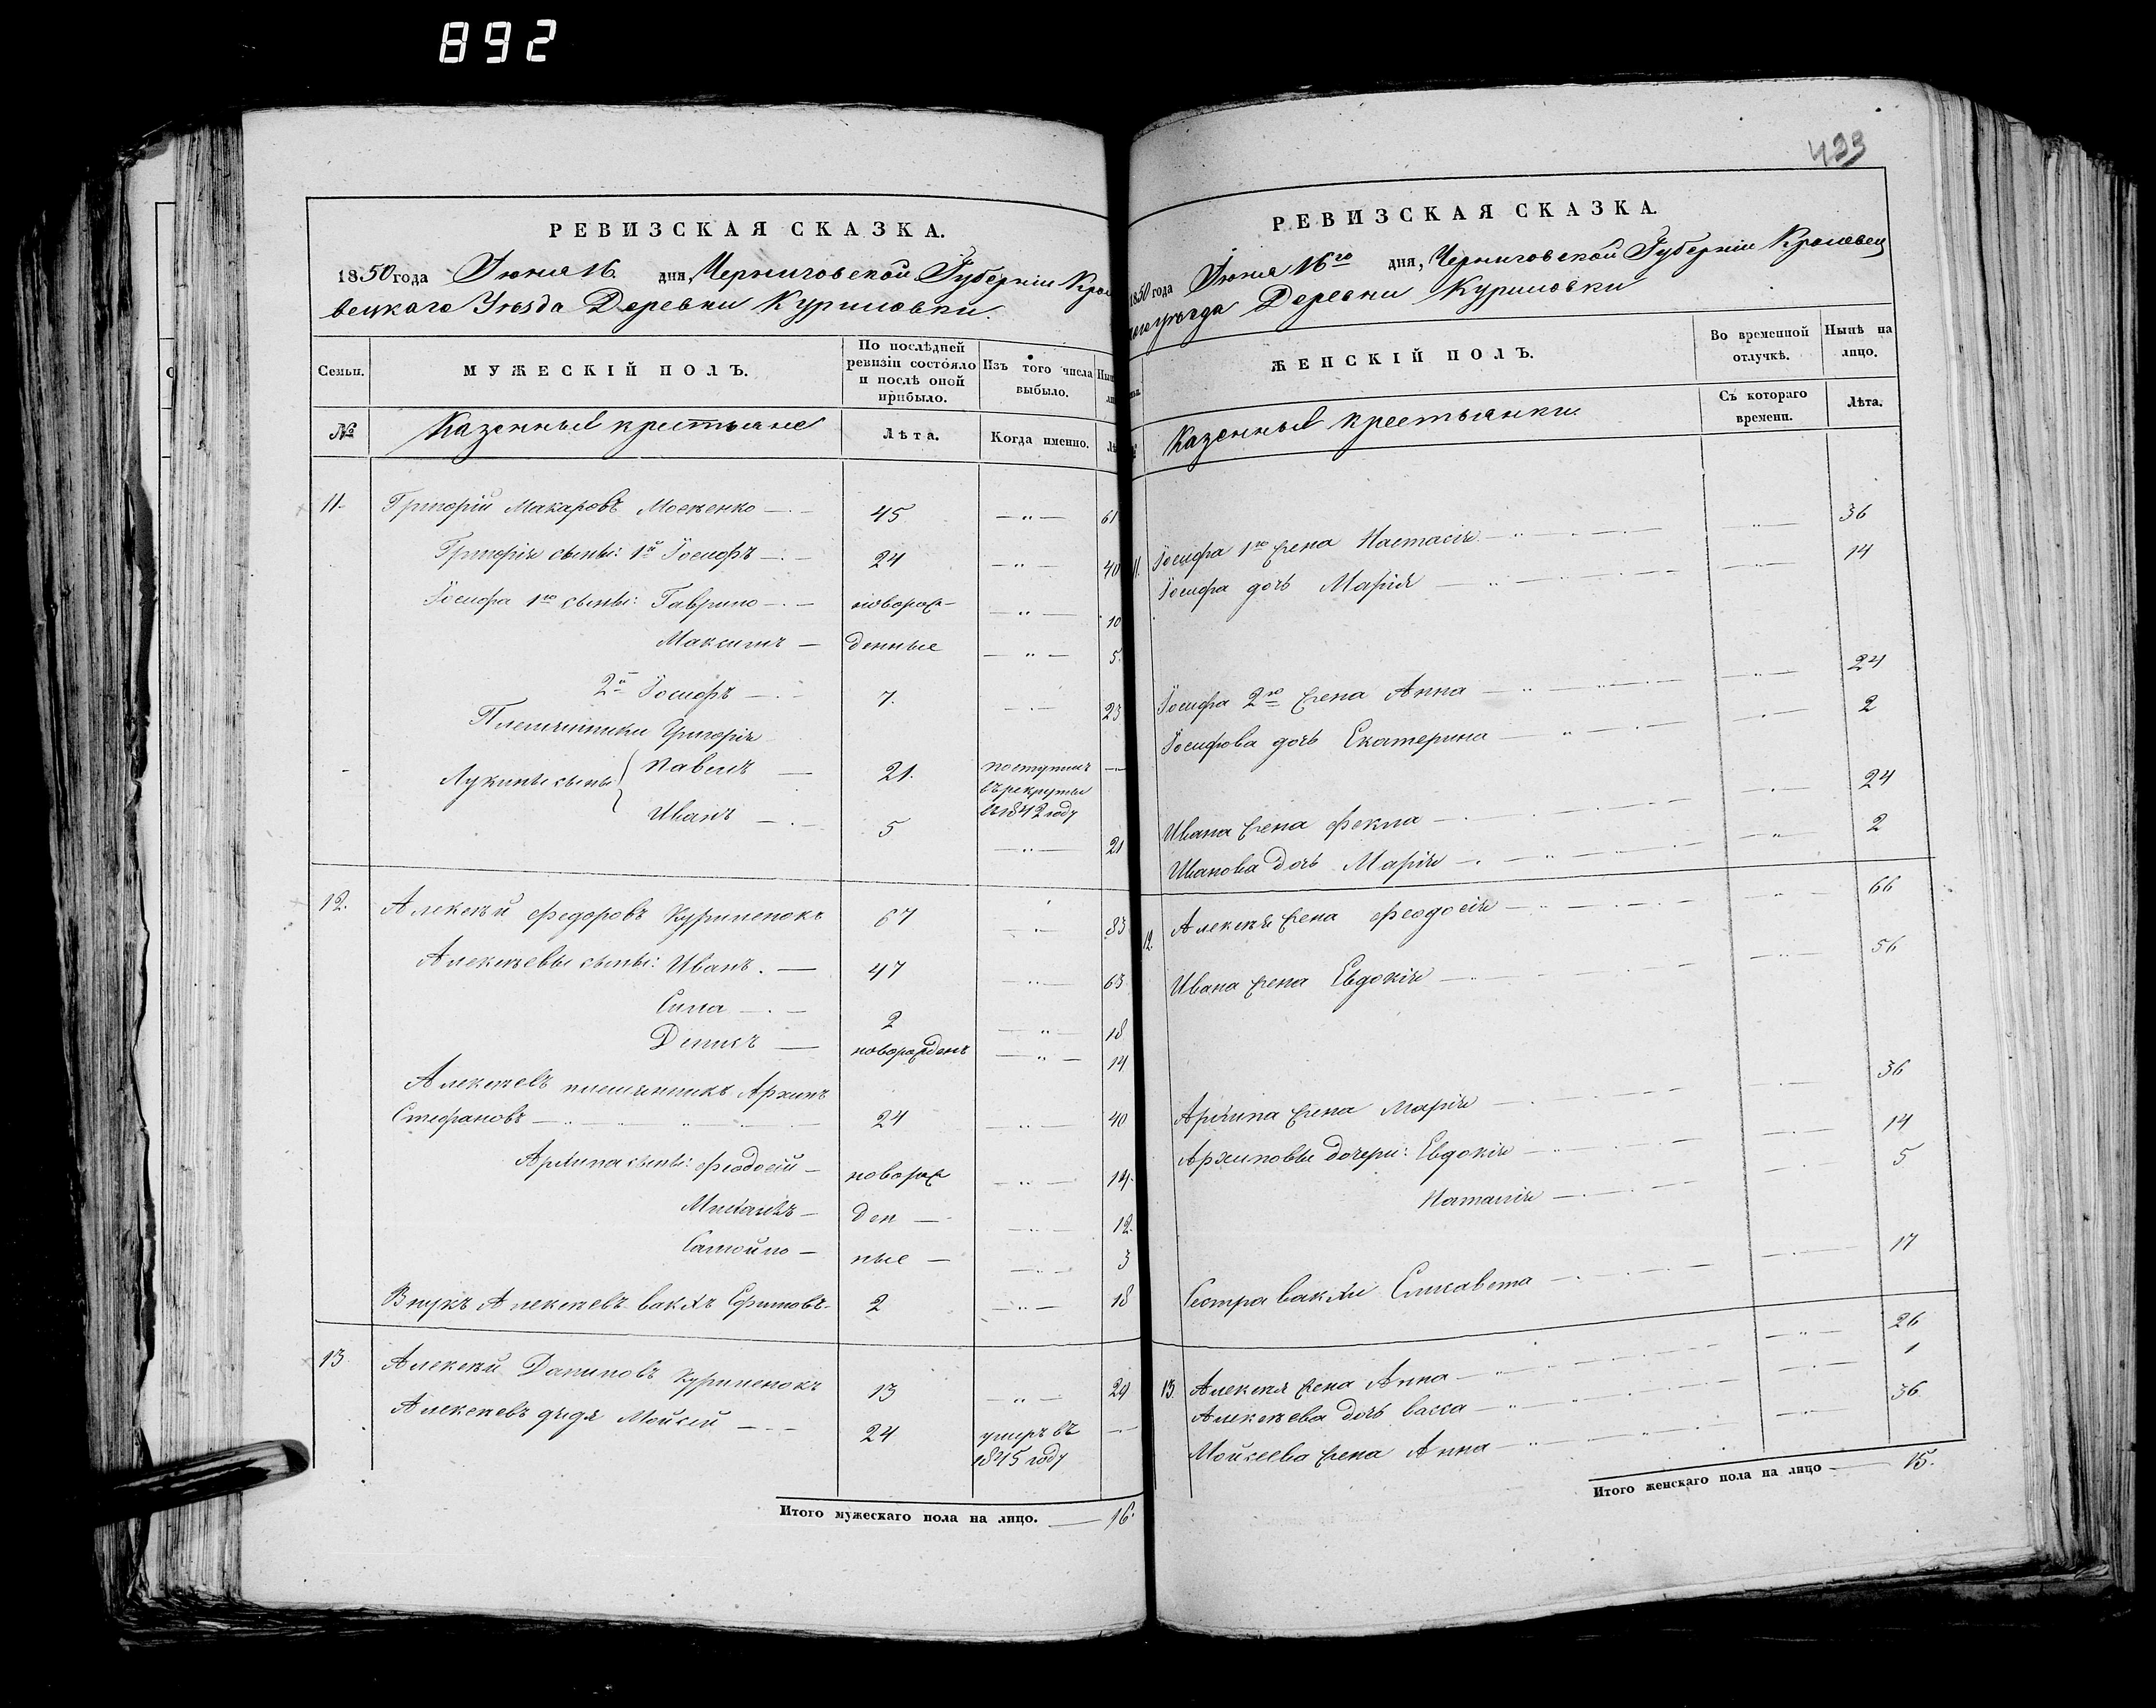 892
РЕВИЗСКАЯ СКАЗКА.
1850 года Іюня 16. дня, Черниговской Губерніи Кроле
вецкаго Уѣзда Деревни Куриловки.
Семьи. МУЖЕСКІЙ ПОЛЪ. По послѣдней ревизіи состояло и послѣ оной прибыло. Изъ того числа выбыло.
№ Казенные крестьяне Лѣта. Когда именно.
11. Григорій Макаровъ Мосѣенко 45 — " — 61
Григорія сыны: 1й Іосифъ 24 — " — 40
Іосифа 1го сыны: Гаврило новорож- — " — 10
Максимъ денные — " — 5.
2й Іосифъ 7. — " — 23
Племянники Григорія
Лукины сыны Павелъ 21. поступилъ —
въ рекруты
въ 1842 году
Иванъ 5 — " — 21
12. Алексѣй Федоровъ Куриленокъ 67 — " — 83
Алексѣевы сыны: Иванъ. 47 — " — 63
Сила 2 — " — 18
Денисъ новорожденъ — " — 14
Алексѣевъ племянникъ Архипъ
Стефановъ 24 — " — 40
Архипа сыны: Феодосій новорож — " — 14.
Михаилъ ден — " — 12.
Самойло ные — " — 3
Внукъ Алексѣевъ Вакхъ Ефимовъ 2 — " — 18
13 Алексѣй Даниловъ Куриленокъ 13 — " — 29
Алексѣевъ дядя Мойсей 24 умеръ въ —
1845 году
Итого мужескаго пола на лицо. 16.
423
РЕВИЗСКАЯ СКАЗКА.
1850 года Іюня 16го дня, Черниговской Губерніи Кролевец
уѣзда Деревни Куриловки
ЖЕНСКІЙ ПОЛЪ. Во временной отлучкѣ. Нынѣ на лицо.
Казенныя крестьянки Съ котораго времени. Лѣта.
11. Іосифа 1го жена Настасія — " — 36
Іосифа дочь Марія — " — 14
Іосифа 2го жена Анна — " — 24
Іосифова дочь Екатерина — " — 2
Ивана жена Фекла — " — 24
Иванова дочь Марія — " — 2
12. Алексѣя жена Феодосія — " — 66
Ивана жена Евдокія — " — 56
Архипа жена Марія — " — 36
Архиповы дочери: Евдокія — " — 14
Наталія — " — 5
Сестра Вакхи Елисавета — " — 17
13. Алексѣя жена Анна — " — 26
Алексѣева дочь Васса — " — 1
Мойсеева жена Анна — " — 36
Итого женскаго пола на лицо 15.